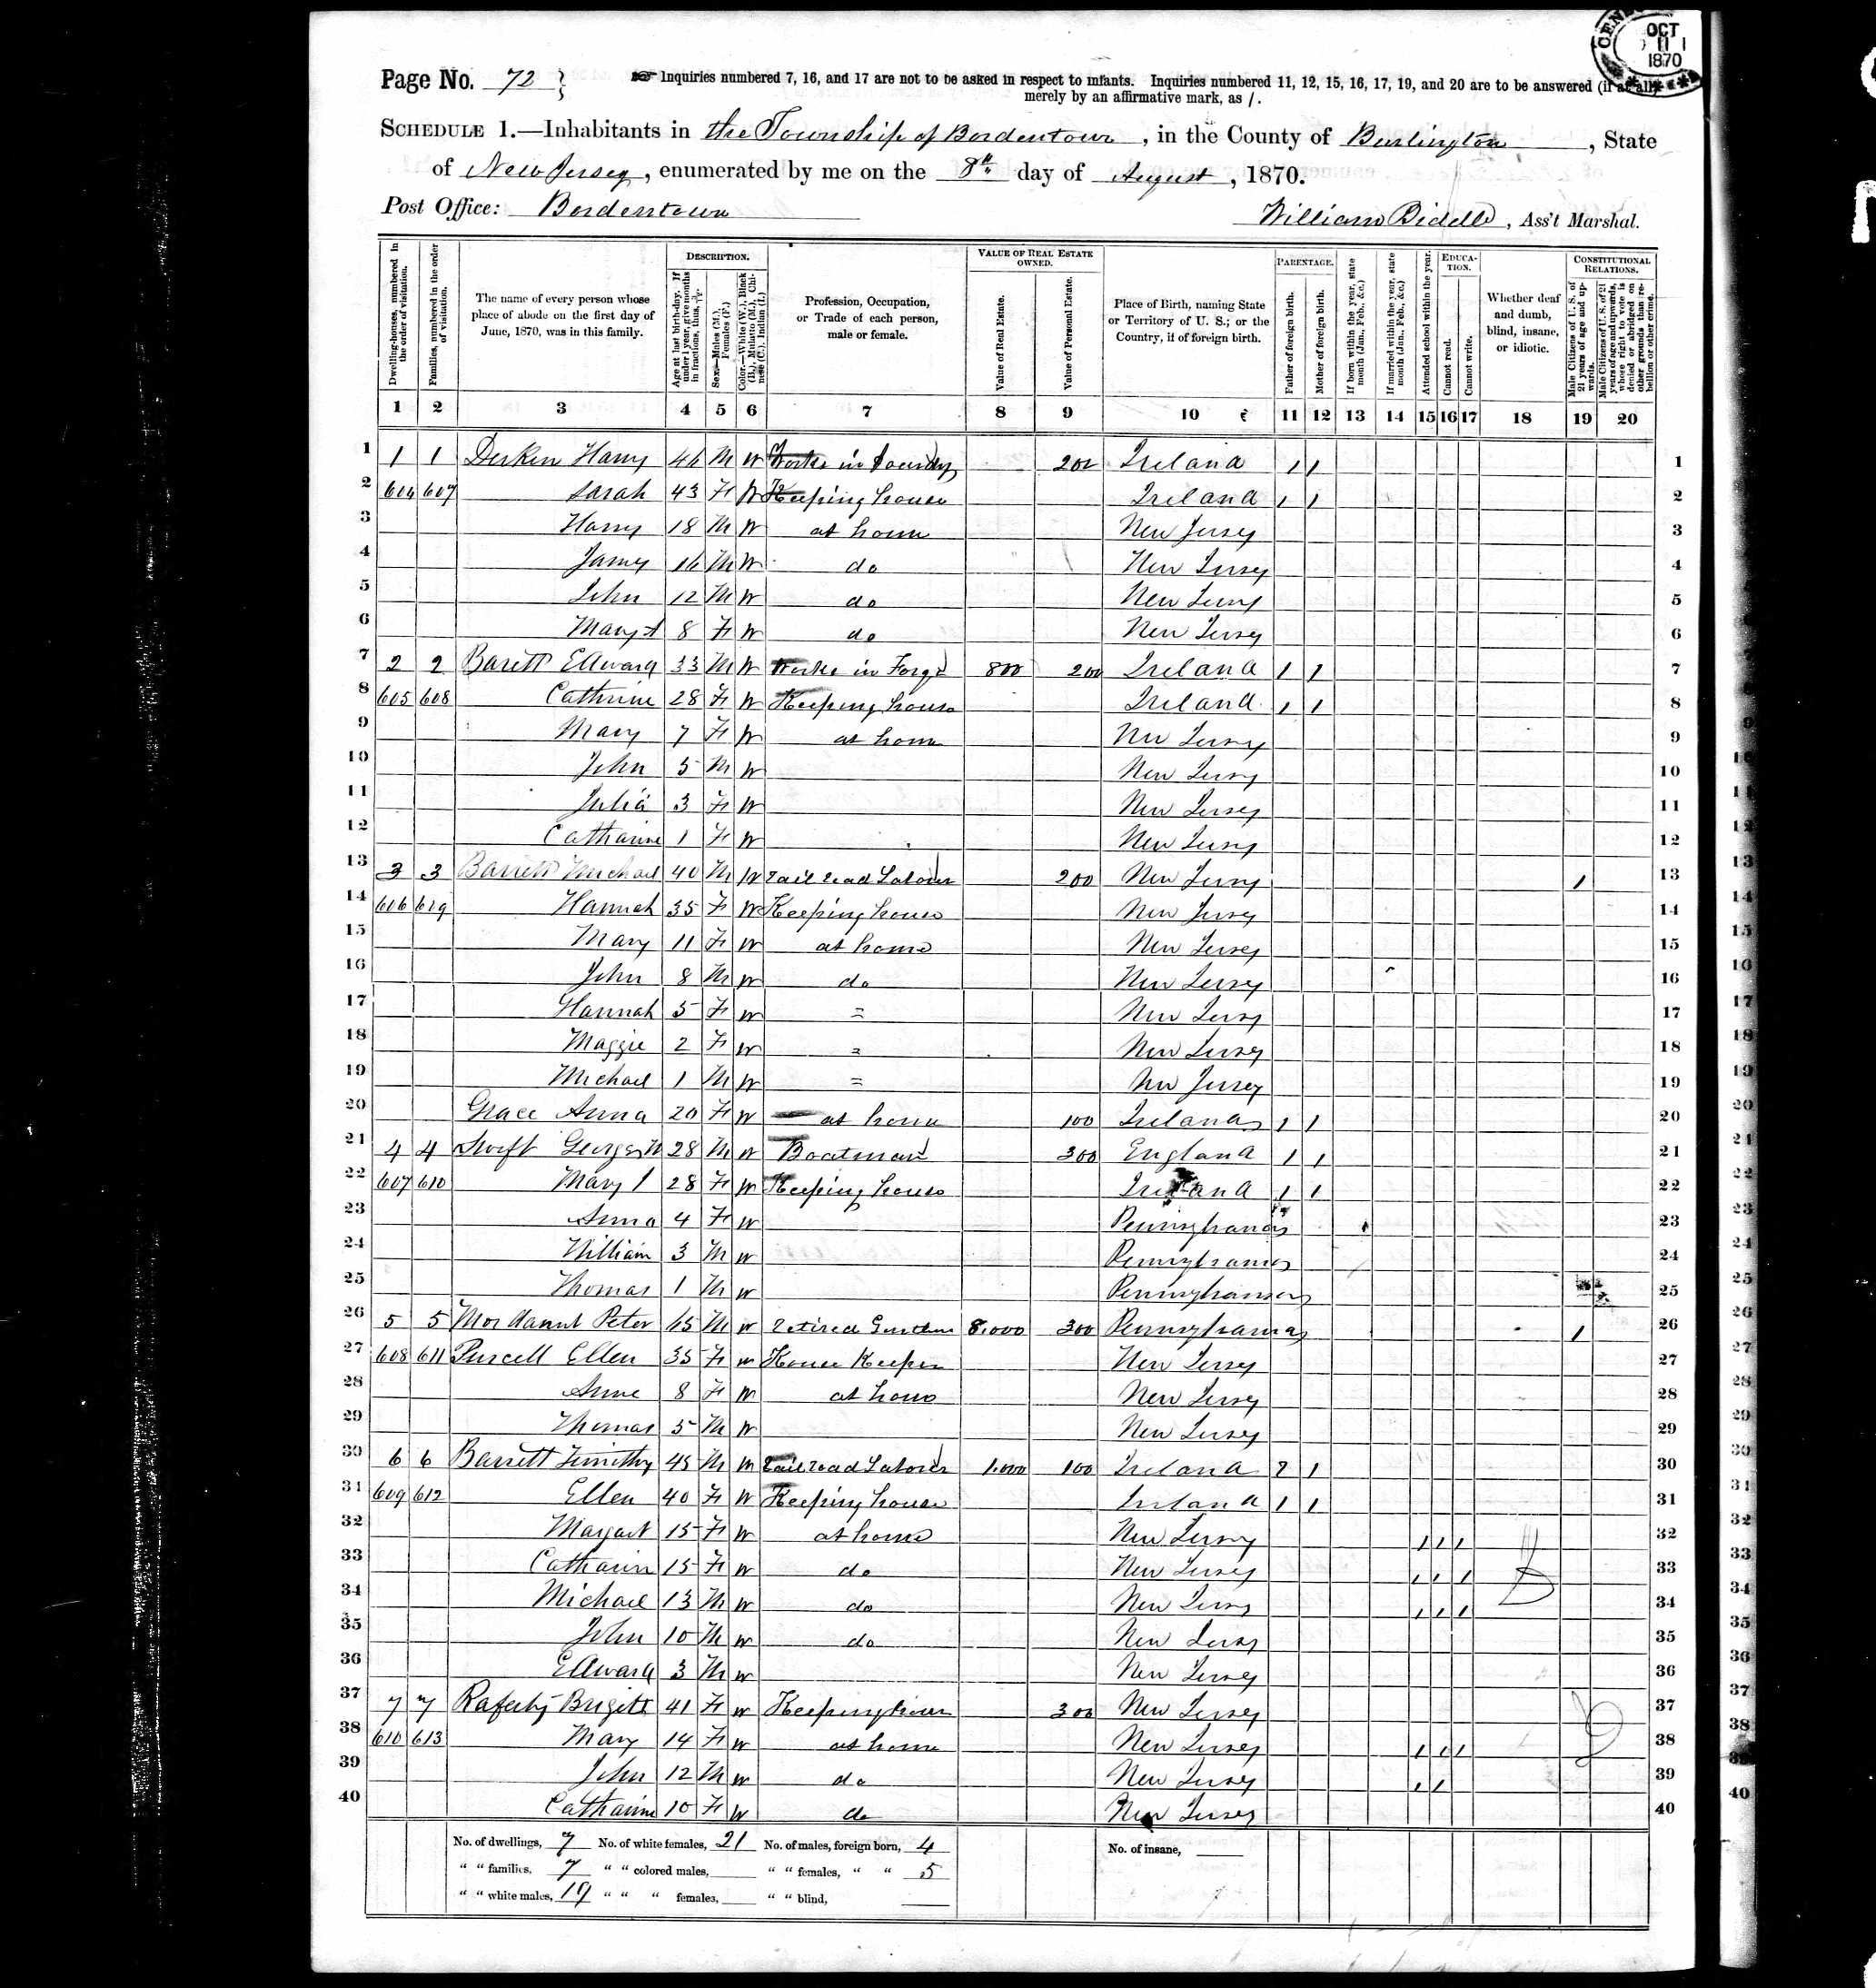 CEN
OCT
11
1870
Page No. 72
Inquiries numbered 7, 16, and 17 are not to be asked in respect to infants. Inquiries numbered 11, 12, 15, 16, 17, 19, and 20 are to be answered (if at all)
merely by an affirmative mark, as /.
SCHEDULE 1.—Inhabitants in the Township of Bordentown, in the County of Burlington, State
of New Jersey, enumerated by me on the 8th day of August, 1870.
Post Office: Bordentown
William Biddle, Ass't Marshal.
Dwelling-houses, numbered in the order of visitation.
Families, numbered in the order of visitation.
The name of every person whose place of abode on the first day of June, 1870, was in this family.
DESCRIPTION.
Age at last birth-day. If under 1 year, give months in fractions, thus, 3/12
Sex.—Males (M.), Females (F.)
Color.—White (W.), Black (B.), Mulatto (M.), Chinese (C.), Indian (I.)
Profession, Occupation, or Trade of each person, male or female.
VALUE OF REAL ESTATE OWNED.
Value of Real Estate.
Value of Personal Estate.
Place of Birth, naming State or Territory of U. S.; or the Country, if of foreign birth.
PARENTAGE.
Father of foreign birth.
Mother of foreign birth.
If born within the year, state month (Jan., Feb., &c.)
If married within the year, state month (Jan., Feb., &c.)
Attended school within the year.
EDUCATION.
Cannot read.
Cannot write.
Whether deaf and dumb, blind, insane, or idiotic.
CONSTITUTIONAL RELATIONS.
Male Citizens of U. S. of 21 years of age and upwards.
Male Citizens of U. S. of 21 years of age and upwards, whose right to vote is denied or abridged on other grounds than rebellion or other crime.
1 2 3 4 5 6 7 8 9 10 11 12 13 14 15 16 17 18 19 20
1 1 1 Harry 46 M W Works in foundry 200 Ireland / / 1
2 604 607 Sarah 43 F W Keeping house Ireland / / 2
3 Harry 18 M W at home New Jersey 3
4 James 16 M W do New Jersey 4
5 John 12 M W do New Jersey 5
6 Mary A 8 F W do New Jersey 6
7 2 2 Barett Edward 33 M W Works in Forge 800 200 Ireland / / 7
8 605 608 Cathrine 28 F W Keeping house Ireland / / 8
9 Mary 7 F W at home New Jersey 9
10 John 5 M W New Jersey 10
11 Julia 3 F W New Jersey 11
12 Catharine 1 F W New Jersey 12
13 3 3 Barrett Michael 40 M W rail road Laborer 200 New Jersey / 13
14 606 609 Hannah 35 F W Keeping house New Jersey 14
15 Mary 11 F W at home New Jersey 15
16 John 8 M W do New Jersey 16
17 Hannah 5 F W = New Jersey 17
18 Maggie 2 F W = New Jersey 18
19 Michael 1 M W = New Jersey 19
20 Grace Anna 20 F W at home 100 Ireland / / 20
21 4 4 Swift George W 28 M W Boatman 300 England / / 21
22 607 610 Mary 28 F W Keeping house Ireland / / 22
23 Anna 4 F W Pennsylvania 23
24 William 3 M W Pennsylvania 24
25 Thomas 1 M W Pennsylvania 25
26 5 5 Peter 65 M W retired 8,000 300 Pennsylvania / 26
27 608 611 Purcell Ellen 35 F W House Keeper New Jersey 27
28 Anne 8 F W at home New Jersey 28
29 Thomas 5 M W New Jersey 29
30 6 6 Barrett Timithy 45 M W rail road Laborer 1,000 100 Ireland / 30
31 609 612 Ellen 40 F W Keeping house Ireland / / 31
32 Margaret 15 F W at home New Jersey / / / 32
33 Catharin 15 F W do New Jersey / / / 33
34 Michael 13 M W do New Jersey / / / 34
35 John 10 M W do New Jersey 35
36 Edward 3 M W New Jersey 36
37 7 7 Raferty Brigett 41 F W Keeping house 300 New Jersey 37
38 610 613 Mary 14 F W at home New Jersey / / / 38
39 John 12 M W do New Jersey / / 39
40 Catharine 10 F W do New Jersey 40
No. of dwellings, 7 No. of white females, 21 No. of males, foreign born, 4 No. of insane,
" " families, 7 " " colored males, " " females, " " 5
" " white males, 19 " " " females, " " blind,